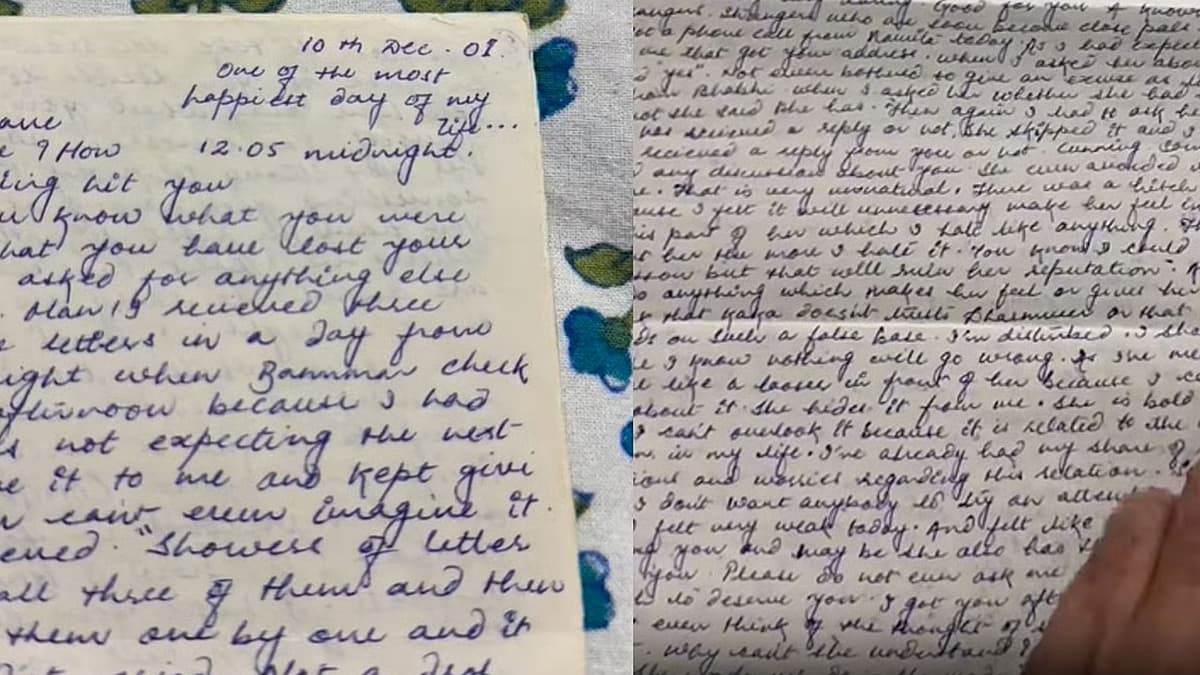 10th Dec. 01.
One of the most
happiest day of my
life...
12.05 midnight.
? How
ing hit you
know what you were
hat you have lost your
asked for anything else
recieved three
letters in a day from
ight when Bamman check
afternoon because I had
s not expecting the next
e it to me and kept givi
can't even imagine it.
ened. "Showers of letter
all three of them and then
them one by one and it
good for you I know
angers. Strangers who are soon become close pals
ot a phone call from Namita today. As I had expec
me that got your address. When I asked her abou
"yes". Not even bothered to give an excuse as
Bhabhi. When I asked her whether she had
not she said she has. Then again I had to ask h
has recieved a reply or not. She skipped it and I
recieved a reply from you or not. Cunning
any discussion about you. She even avoided
e. That is very unnatural. There was a
ause I felt it will unnecessary make her feel
his part of her which I hate like anything.
her the more I hate it. You know I could
know but that will ruin her reputation.
o anything which makes her feel or gives
that Kaka doesn't trusts or that
on such a false base. I'm disturbed. I
e I know nothing will go wrong.
like a looser in front of her because I
about it. She hides it from me. She is bold
I can't overlook it because it is related to the
in my life. I've already had my share of
ions and worries regarding this relation.
I don't want anybody to try an
felt very weak today. And felt like
ng you and may be she also has
you. Please do not even ask me
to deserve you. I got you aft
even think of the thought of
why can't she understand?